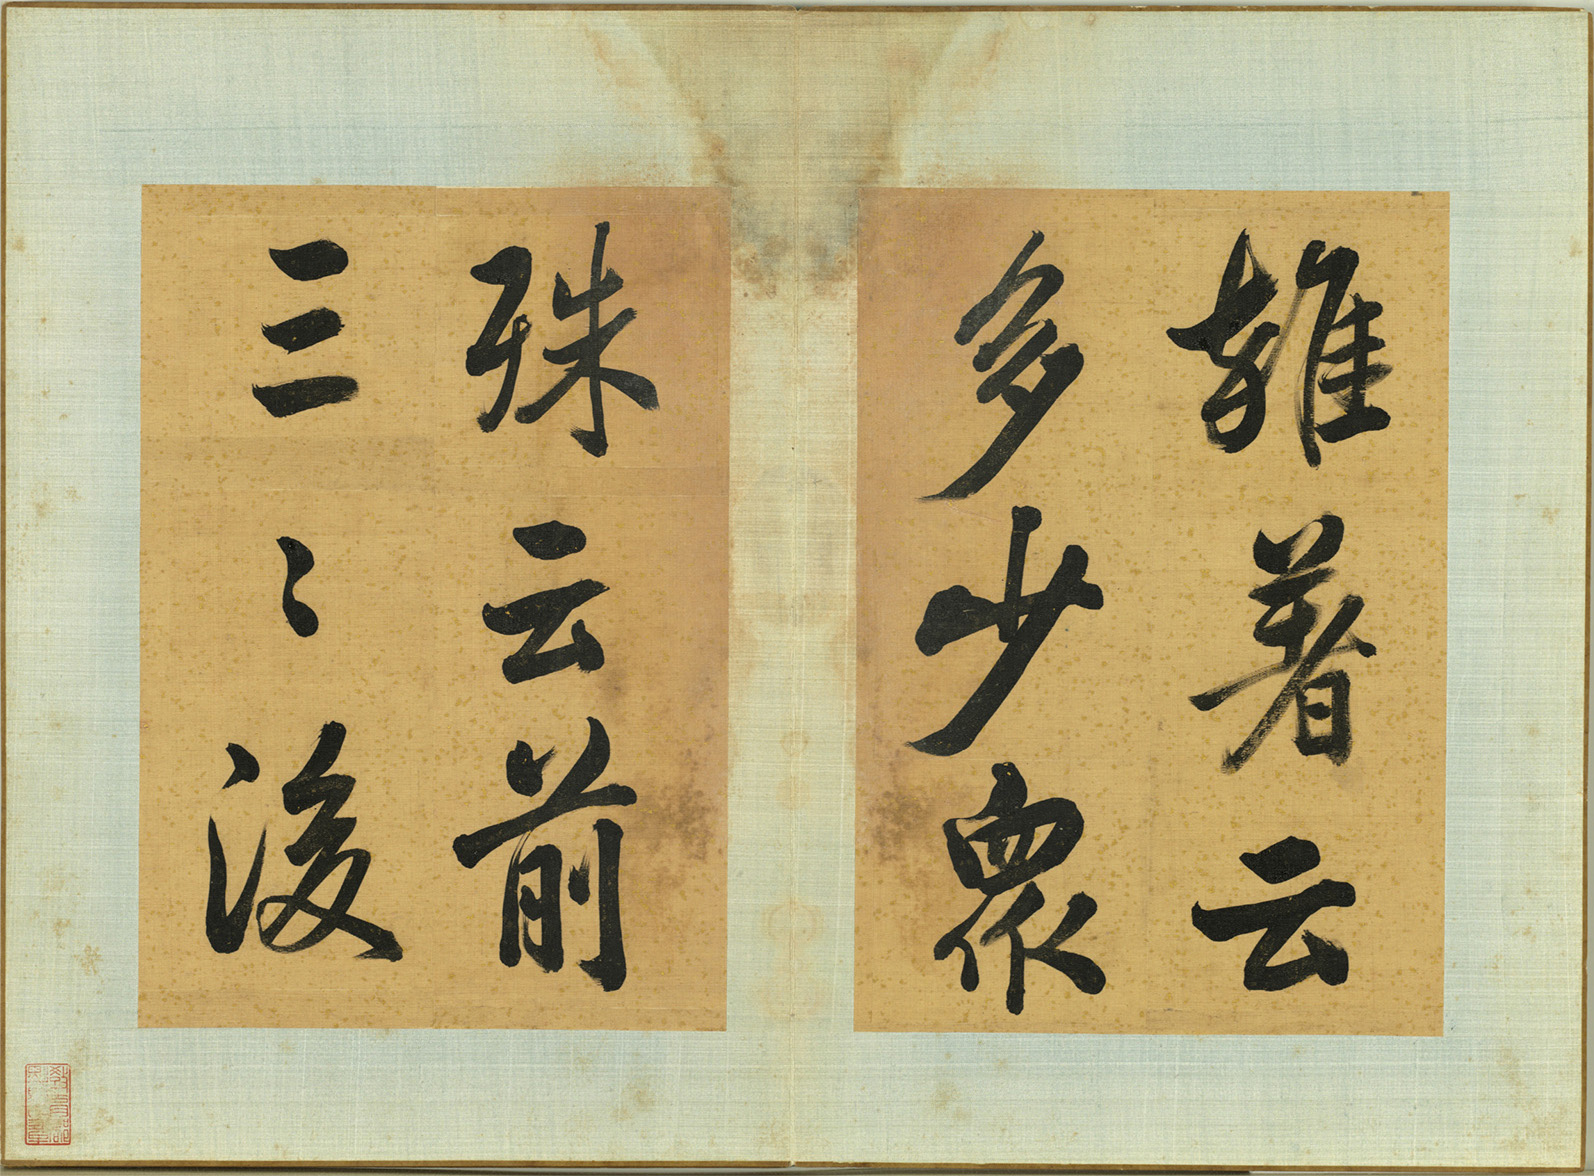 雜著云
多少衆
殊云前
三〻後